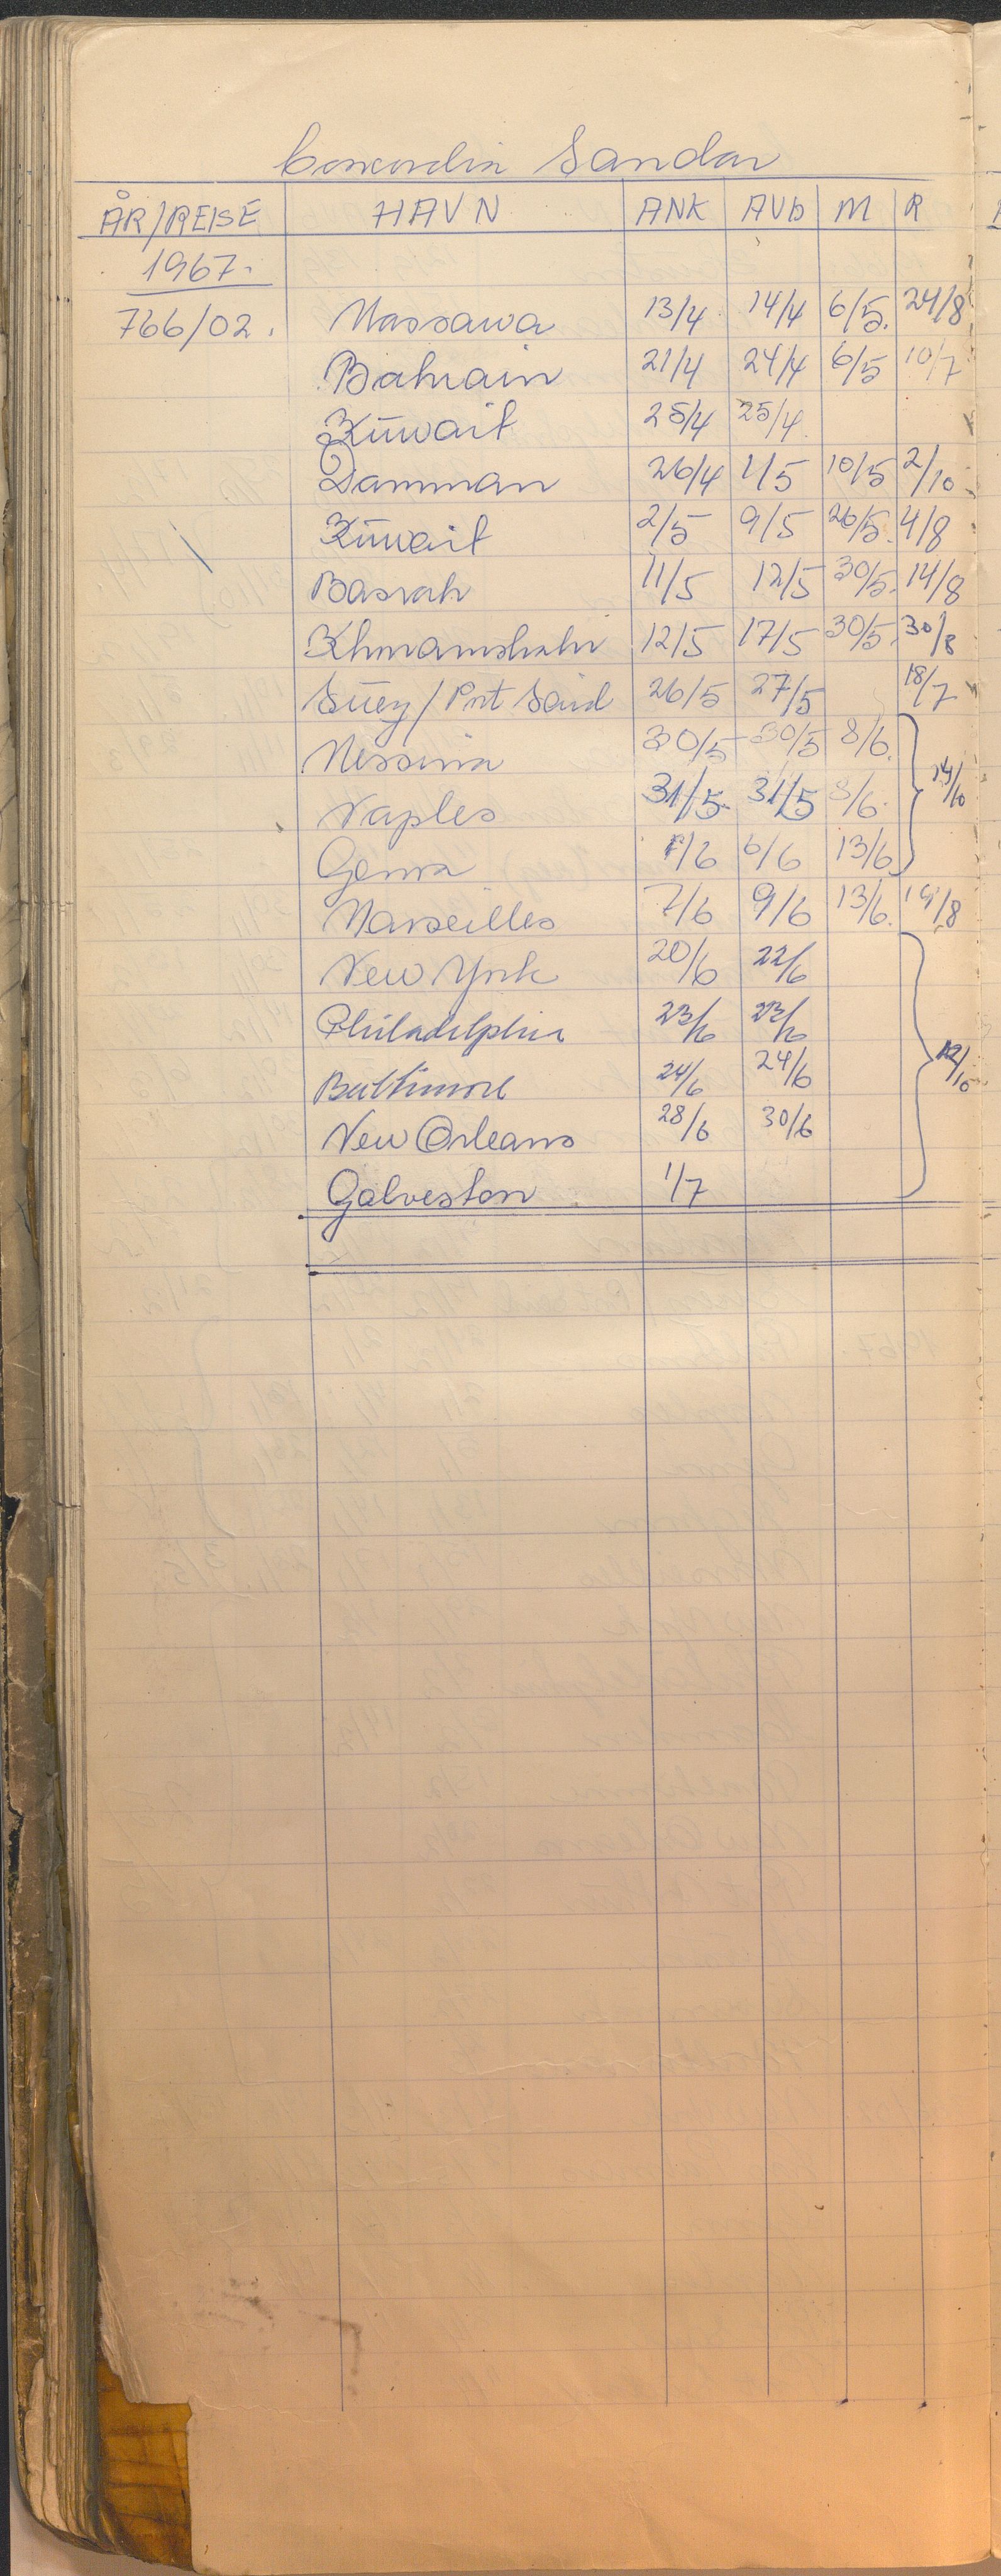 Concordia Sandar
ÅR/REISE HAVN ANK AVG M R
1967.
766/02. Massawa 13/4 14/4 6/5. 24/8
Bahrain 21/4 24/4 6/5 10/7
Küwait 25/4 25/4
Damman 26/4 1/5 10/5 2/10
Küwait 2/5 9/5 26/5. 4/8
Basrah 11/5 12/5 30/5. 14/8
Khoramshahr 12/5 17/5 30/5. 30/8
Süez/Port Said 26/5 27/5 18/7
Messina 30/5 30/5 8/6.
Naples 31/5. 31/5 8/6. 14/10
Genoa 1/6 6/6 13/6
Marseilles 7/6 9/6 13/6. 14/8
New York 20/6 22/6
Philadelphia 23/6 23/6
Baltimore 24/6 24/6 12/10
New Orleans 28/6 30/6
Galveston 1/7